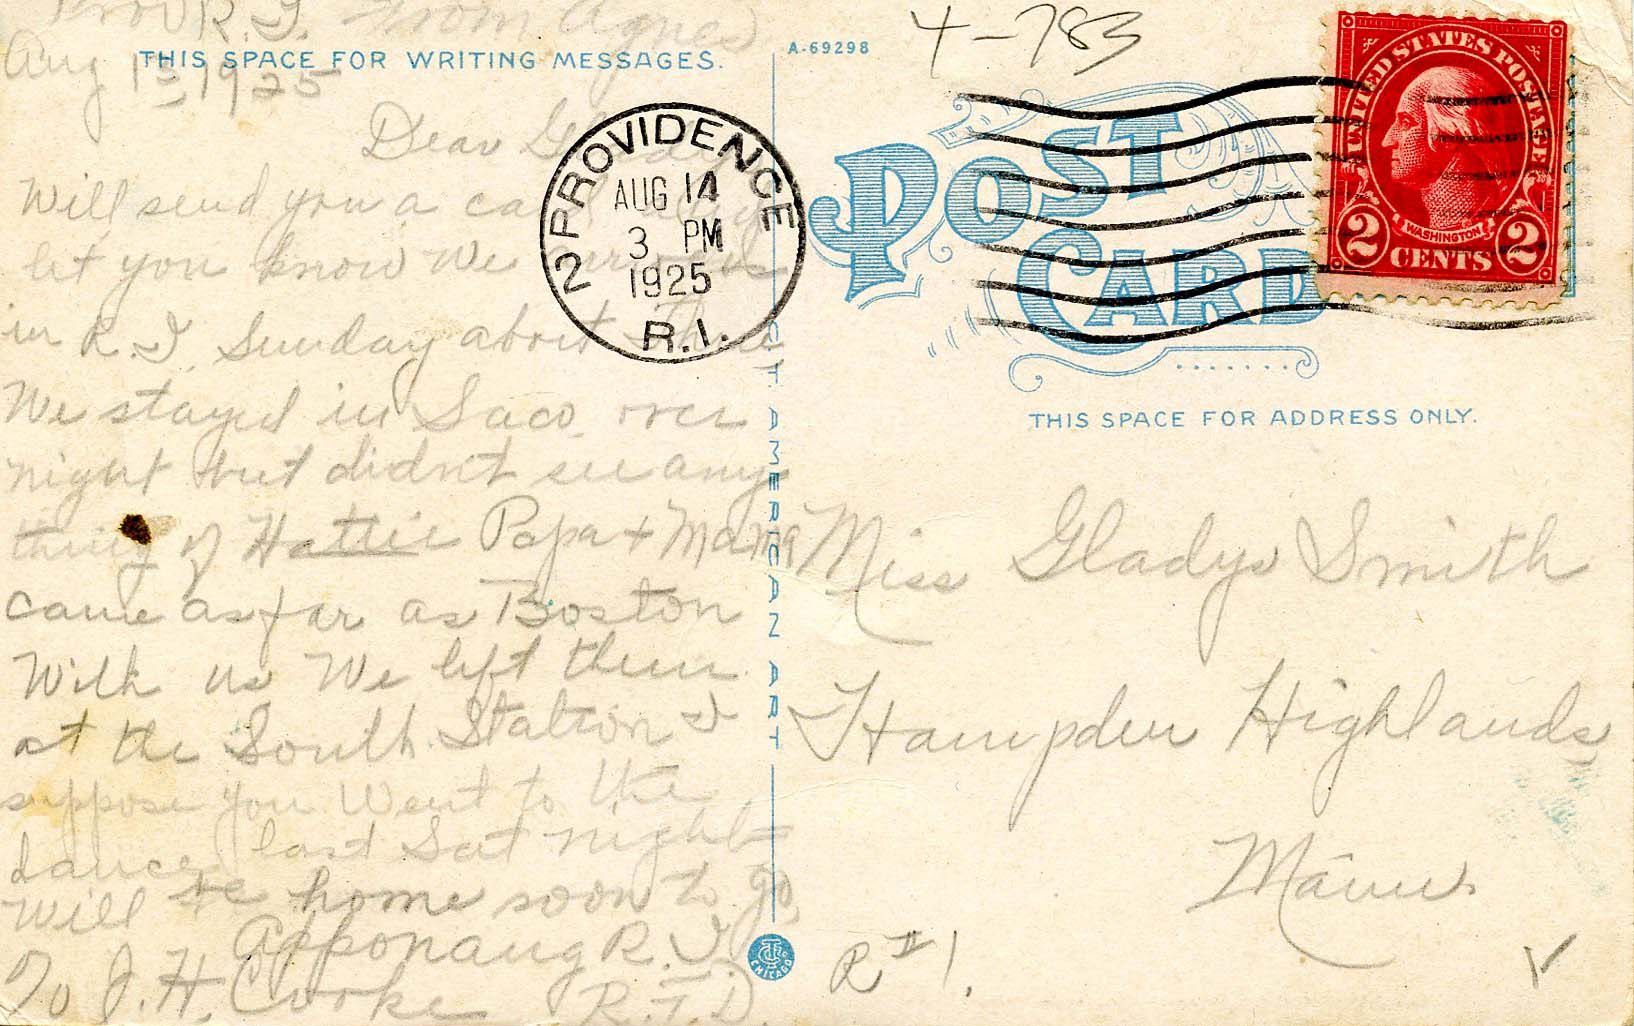 Prov R.I. from Agnes
Aug 13 1925
THIS SPACE FOR WRITING MESSAGES.
Dear Gladys
Will send you a card to
let you know we arrived
in R.I. Sunday about three
We stayed in Saco over
night but didn't see any
thing of Hattie Papa + Mama
came as far as Boston
With us We left them
at the South Station I
suppose you Went to the
dance last Sat night
Will be home soon to go
Apponaug R.I.
℅ J.H. Cooke R.F.D.
C.T. AMERICAN ART
CHICAGO
PROVIDENCE
AUG 14
3 PM
1925
R.I.
2
A-69298
4-783
POST
CARD
UNITED STATES POSTAGE
WASHINGTON
2 CENTS 2
THIS SPACE FOR ADDRESS ONLY.
Miss Gladys Smith
Hampden Highlands
Maine.
R#1.